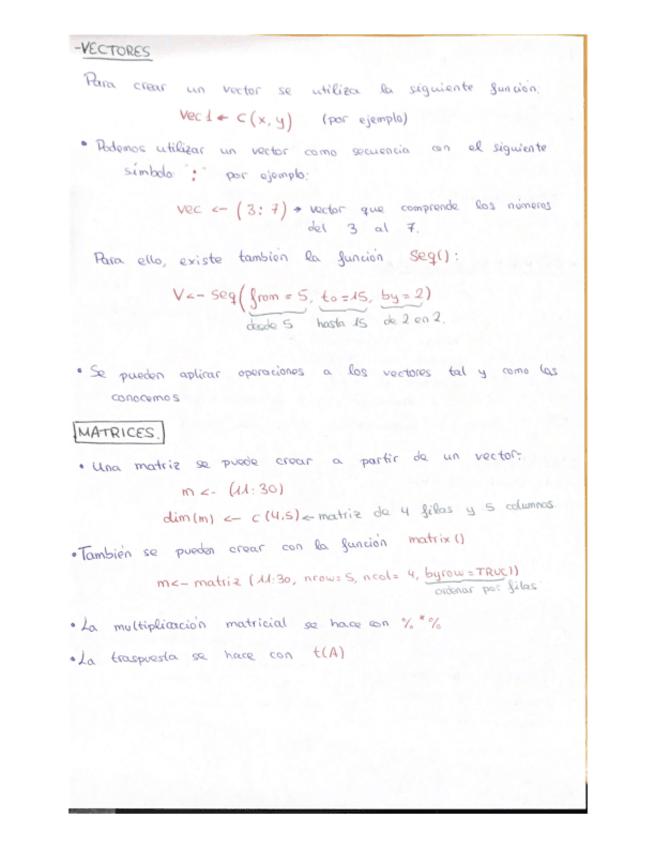 -VECTORES
Para crear un vector se utiliza la siguiente función:
Vec1 ← c(x, y) (por ejemplo)
• Podemos utilizar un vector como secuencia con el siguiente
símbolo ":" por ejemplo:
vec <- (3:7) → vector que comprende los números
del 3 al 7.
Para ello, existe también la función Seq():
V<- seq(from = 5, to =15, by = 2)
desde 5 hasta 15 de 2 en 2.
• Se pueden aplicar operaciones a los vectores tal y como las
conocemos
MATRICES.
• Una matriz se puede crear a partir de un vector:
m <- (11:30)
dim(m) <- c(4,5) ← matriz de 4 filas y 5 columnos
• También se pueden crear con la función matrix()
m<- matriz (11:30, nrow= 5, ncol= 4, byrow = TRUE))
ordenar por filas
• La multiplicación matricial se hace con %*%
• La traspuesta se hace con t(A)